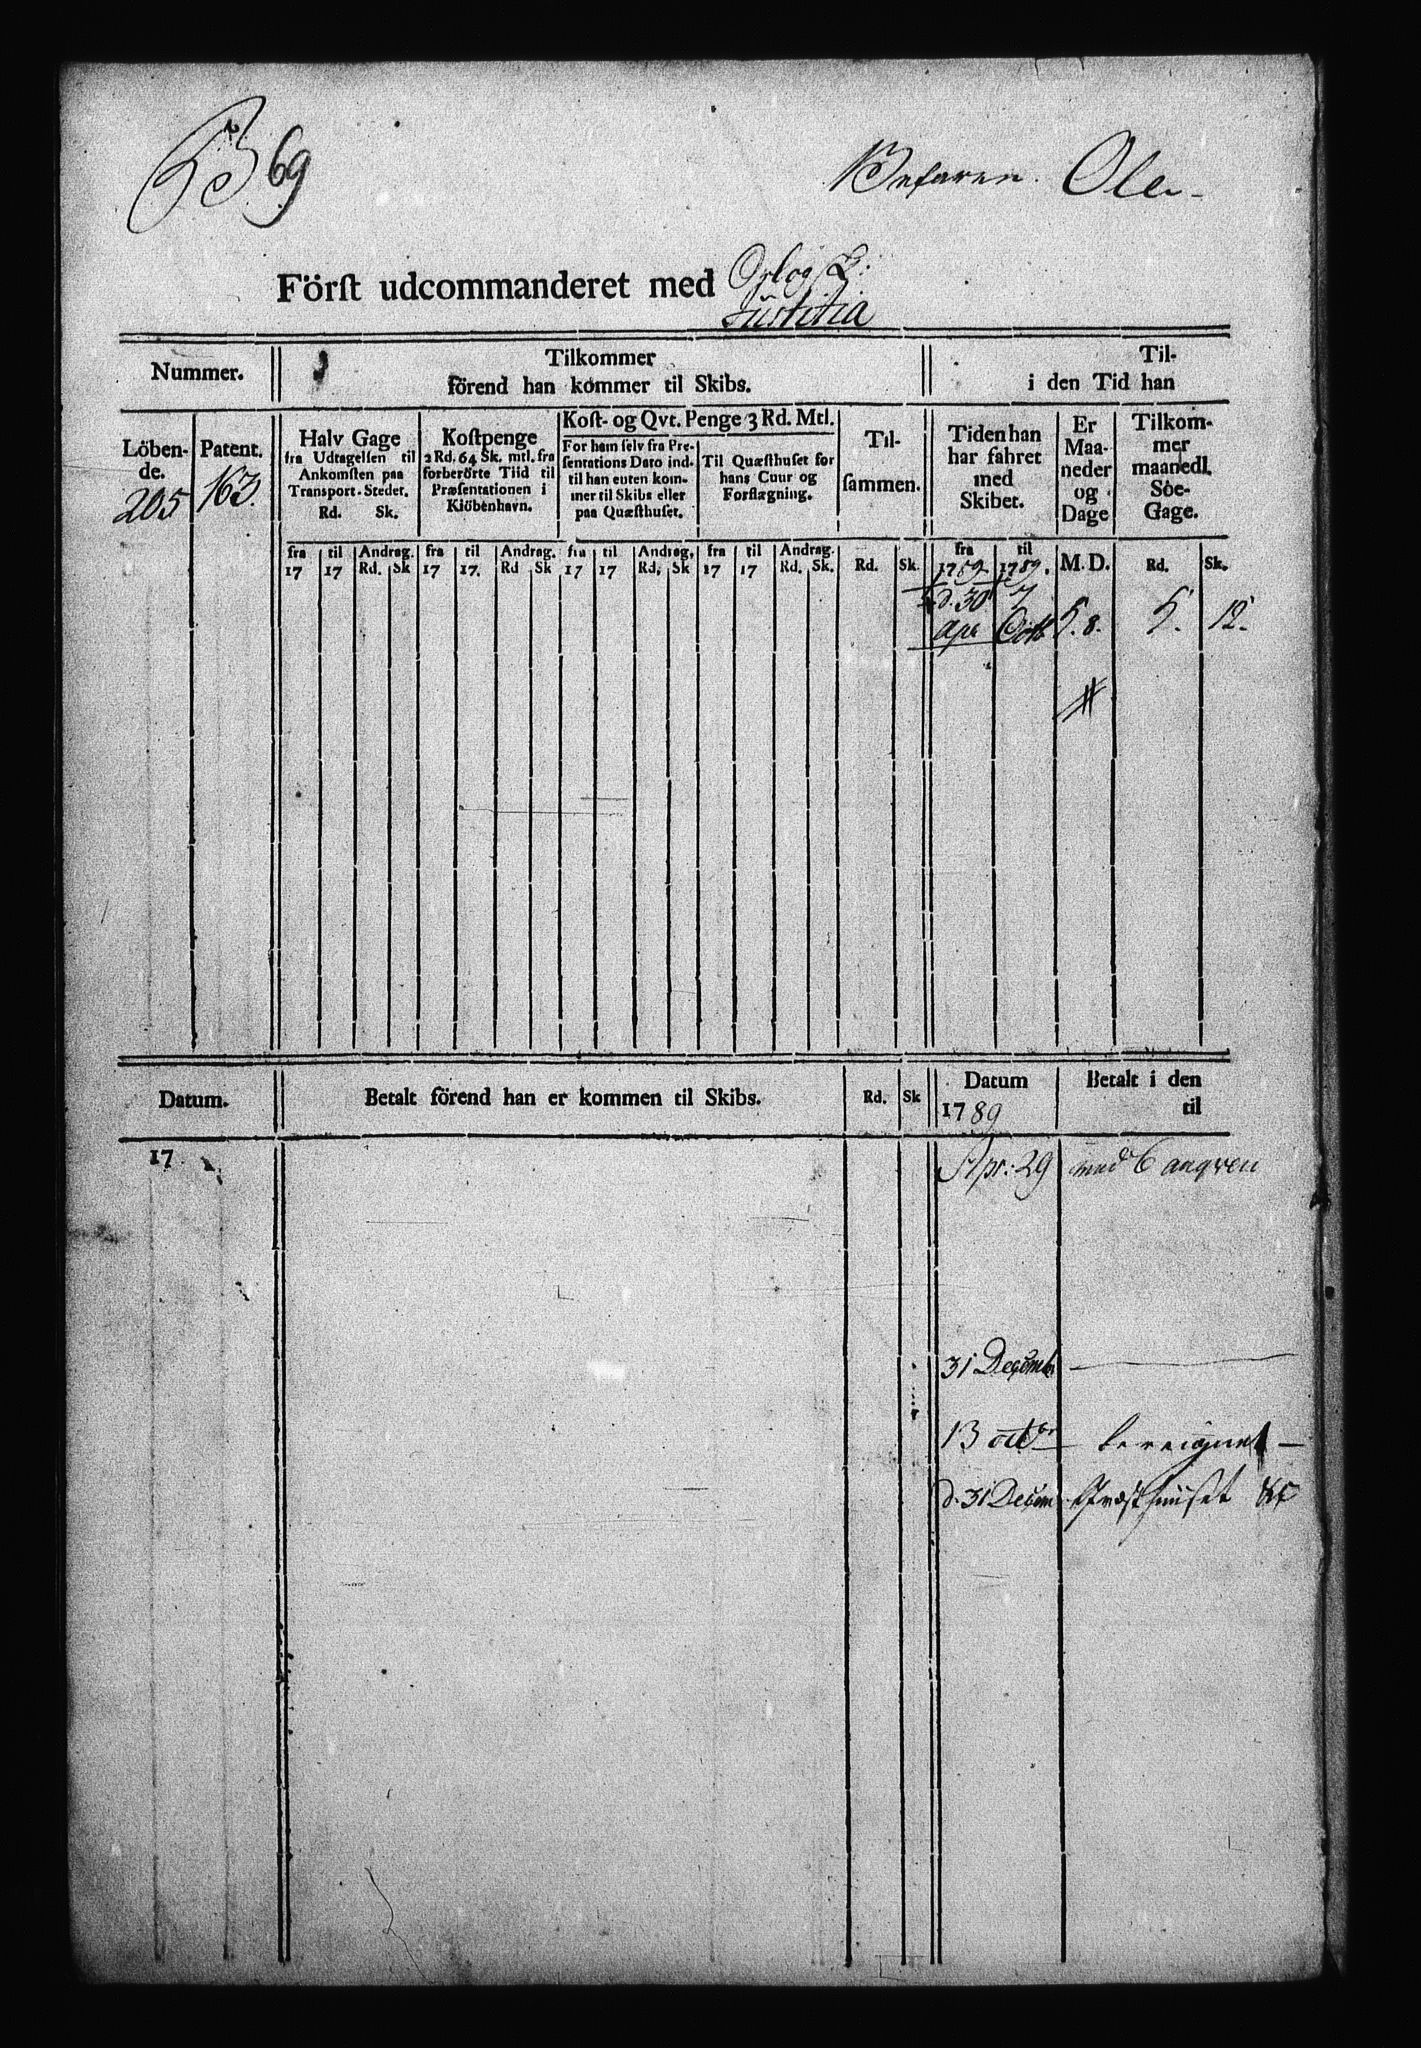 69
Befaren. Ole
Förſt udcommanderet med Orlog S:
Justitia
Nummer.
Tilkommer
förend han kommer til Skibs.
Til-
i den Tid han
Löben-
de.
Patent.
205
163.
Halv Gage
fra Udtagelſen til
Ankomſten paa
Transport-Stedet.
Rd. Sk.
Koſtpenge
2 Rd. 64 Sk. mtl. fra
forberörte Tiid til
Præſentationen i
Kiöbenhavn.
Koſt- og Qvt. Penge 3 Rd. Mtl.
For ham ſelv fra Pre-
ſentations Dato ind-
til han enten kom-
mer til Skibs eller
paa Quæſthuſet.
Til Quæſthuſet for
hans Cuur og
Forſlægning.
Til-
ſammen.
Tiden han
har fahret
med
Skibet.
Er
Maa-
neder
og
Dage
Tilkom-
mer
maanedl.
Söe-
Gage.
fra til Andrag. fra til Andrag. fra til Andrag. fra til Andrag. fra til
17 17 Rd. Sk 17 17. Rd Sk 17 17 Rd. Sk 17 17 Rd. Sk. Rd. Sk. 1789 1789. M. D. Rd. Sk.
d. 30 7
Apr Octb 5. 8. 5. 12.
Datum.
Betalt förend han er kommen til Skibs.
Rd. Sk
Datum
1789
Betalt i den
til
17
Apr: 29 med 6
31 Decemb
13 octbr
d. 31 Decem